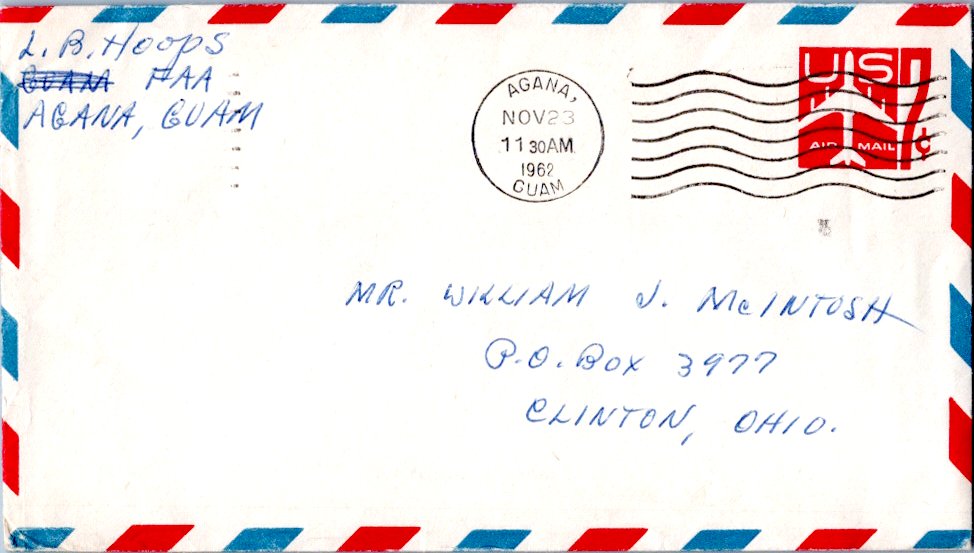 L. B. Hoops
GUAM FAA
AGANA, GUAM
AGANA,
NOV 23
11 30 AM
1962
GUAM
US
AIR MAIL
7¢
MR. WILLIAM J. McINTOSH
P.O. BOX 3977
CLINTON, OHIO.